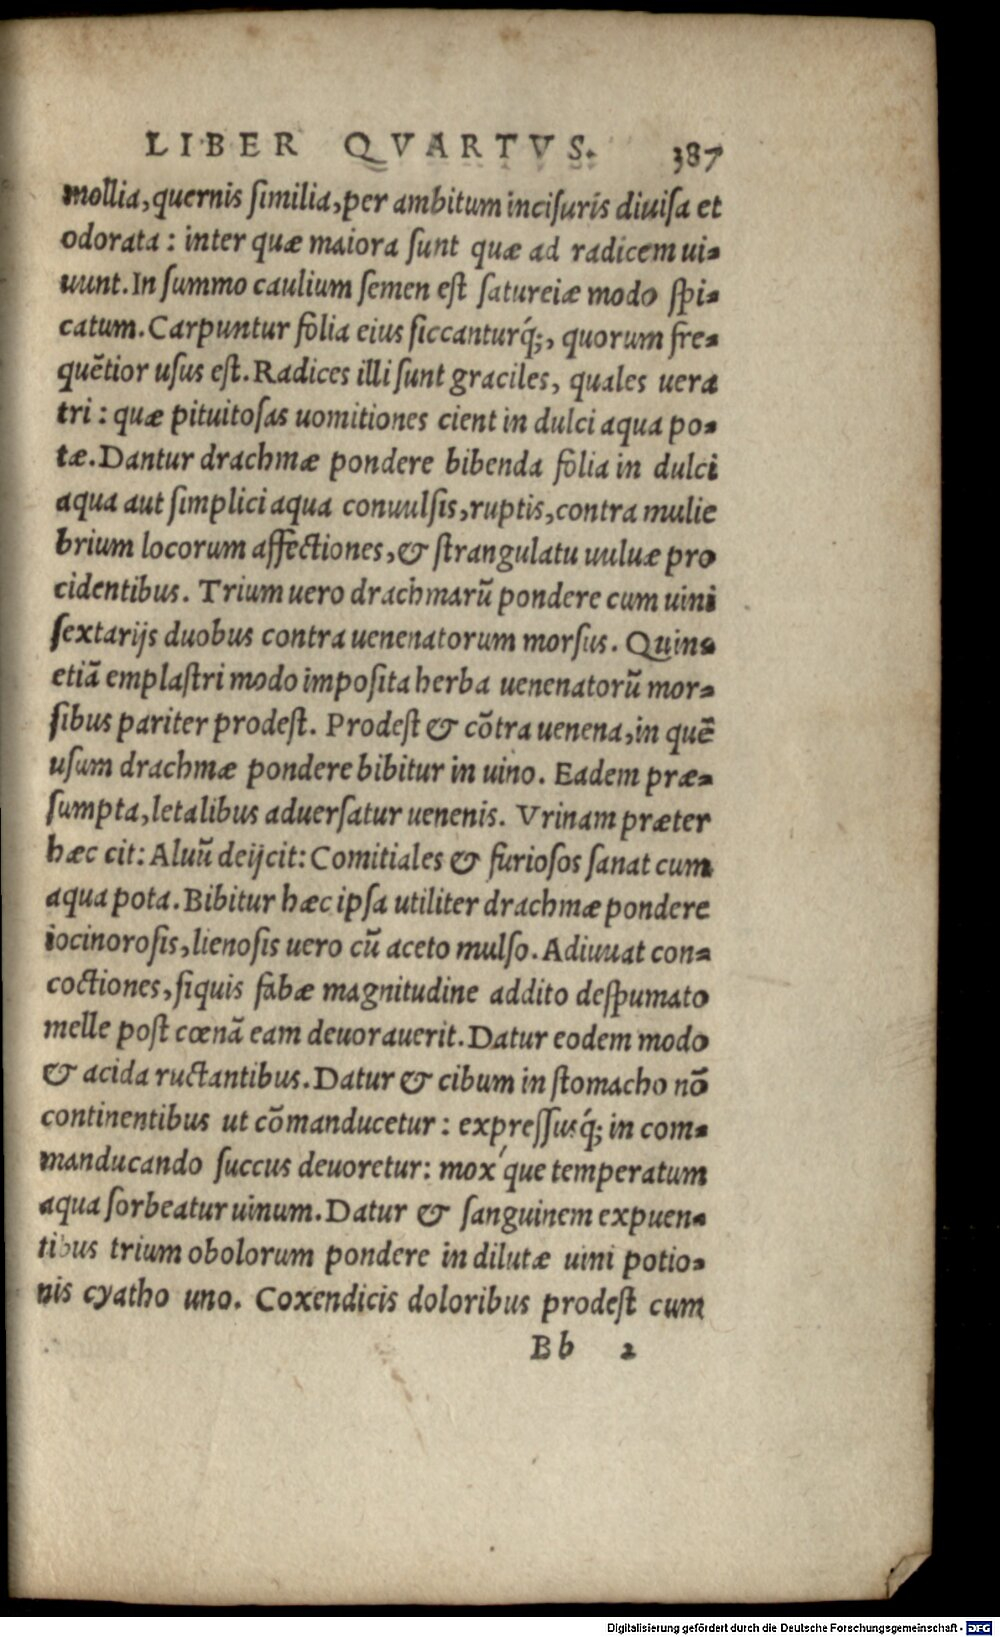 LIBER QVARTVS. 387
mollia, quernis ſimilia, per ambitum inciſuris diuiſa et
odorata : inter quæ maiora ſunt quæ ad radicem ui-
uunt. In ſummo caulium ſemen eſt ſatureiæ modo ſpi-
catum. Carpuntur folia eius ſiccanturq́;, quorum fre-
quẽtior uſus eſt. Radices illi ſunt graciles, quales uera
tri : quæ pituitoſas uomitiones cient in dulci aqua po-
tæ. Dantur drachmæ pondere bibenda folia in dulci
aqua aut ſimplici aqua conuulſis, ruptis, contra mulie
brium locorum affectiones, & ſtrangulatu uuluæ pro
cidentibus. Trium uero drachmarũ pondere cum uini
ſextarijs duobus contra uenenatorum morſus. Quin-
etiã emplaſtri modo impoſita herba uenenatorũ mor-
ſibus pariter prodeſt. Prodeſt & cõtra uenena, in quẽ
uſum drachmæ pondere bibitur in uino. Eadem præ-
ſumpta, letalibus aduerſatur uenenis. Vrinam præter
hæc cit: Aluũ deijcit: Comitiales & furioſos ſanat cum
aqua pota. Bibitur hæc ipſa utiliter drachmæ pondere
iocinoroſis, lienoſis uero cũ aceto mulſo. Adiuuat con-
coctiones, ſiquis fabæ magnitudine addito deſpumato
melle poſt cœnã eam deuorauerit. Datur eodem modo
& acida ructantibus. Datur & cibum in ſtomacho nõ
continentibus ut cõmanducetur : expreſſusq́; in com-
manducando ſuccus deuoretur: mox que temperatum
aqua ſorbeatur uinum. Datur & ſanguinem expuen-
tibus trium obolorum pondere in dilutæ uini potio-
nis cyatho uno. Coxendicis doloribus prodeſt cum
Bb 2
Digitalisierung gefördert durch die Deutsche Forschungsgemeinschaft - DFG